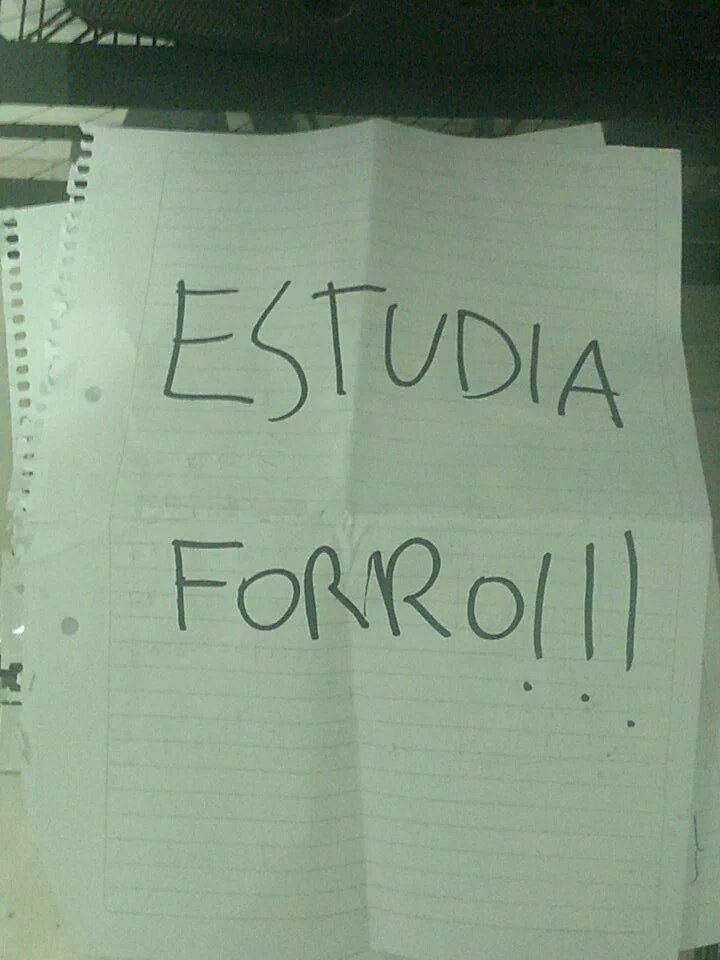 ESTUDIA
FORRO!!!